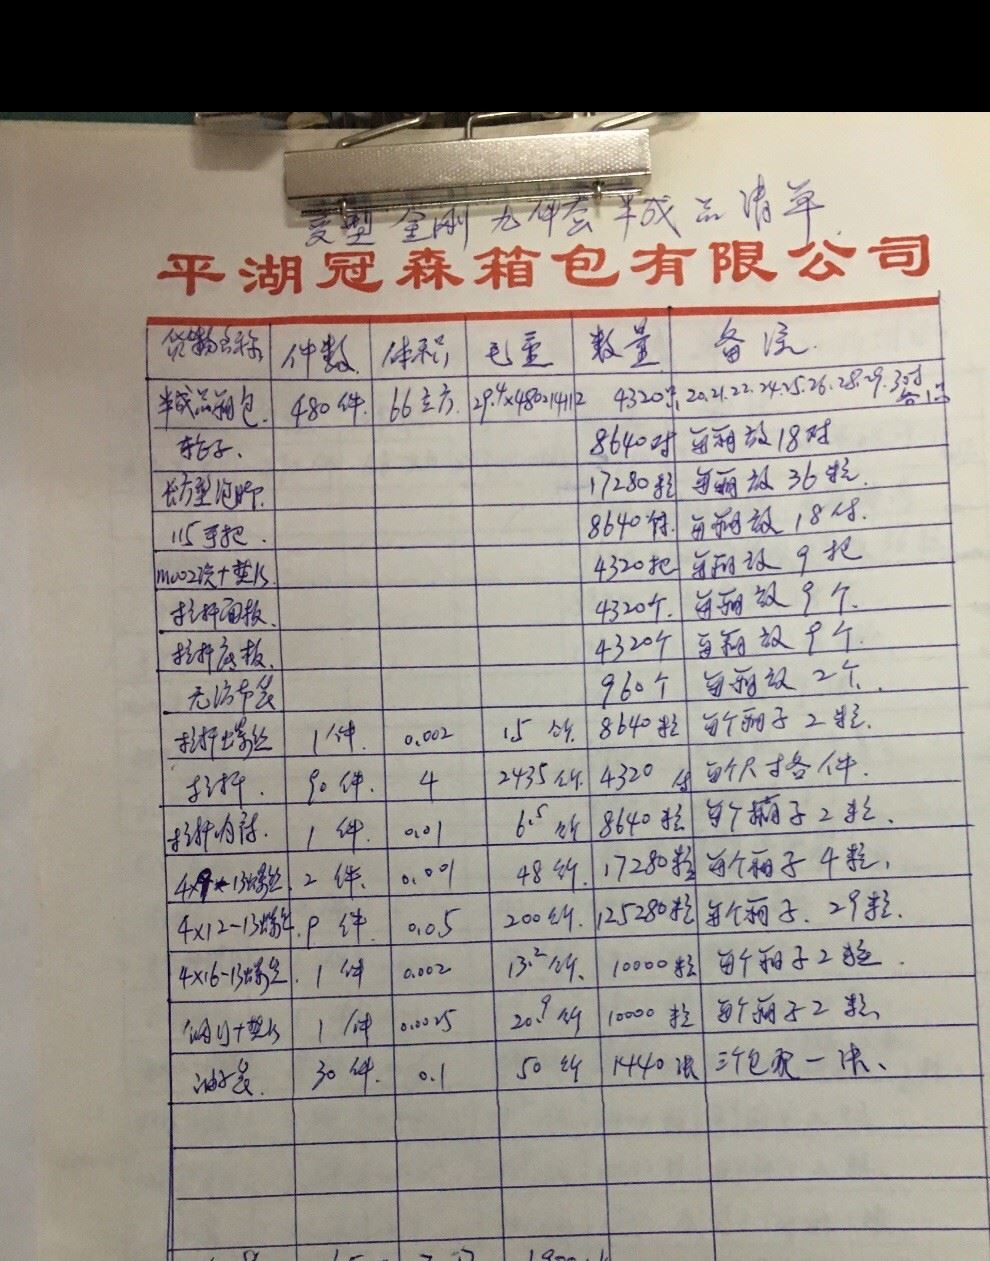 变型金刚九件套半成品清单
平湖冠森箱包有限公司
货物名称 件数 体积 毛重 数量 备注
半成品箱包 480件 66立方 29.4×480=14112 4320只 20.21.22.24.25.26.28.29.30寸各1只
轮子 8640对 每箱放18对
长方型泡脚 17280粒 每箱放36粒
115手把 8640付 每箱放18付
M002 4320把 每箱放9把
拉杆面板 4320个 每箱放9个
拉杆底板 4320个 每箱放9个
无纺布袋 960个 每箱放2个
拉杆螺丝 1件 0.002 15 8640粒 每个箱子2粒
拉杆 90件 4 2435 4320付 每个尺寸各件
拉杆内衬 1件 0.01 6.5 8640粒 每个箱子2粒
4×9-13螺丝 2件 0.001 48 17280粒 每个箱子4粒
4×12-13螺丝 9件 0.05 200 125280粒 每个箱子29粒
4×16-13螺丝 1件 0.002 13.2 10000粒 每个箱子2粒
1件 0.0025 20.9 10000粒 每个箱子2粒
油子袋 30件 0.1 50 1440张 三个包配一张